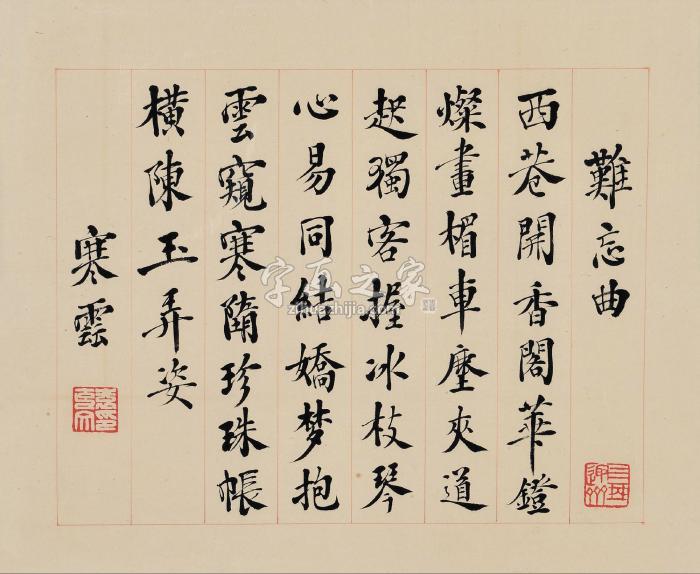 難忘曲
西巷開香閣華鐙
燦畫楣車塵夾道
起獨客握冰枝琴
心易同結嬌梦抱
雲窺寒隋珍珠帳
橫陳玉弄姿
寒雲
字画之家